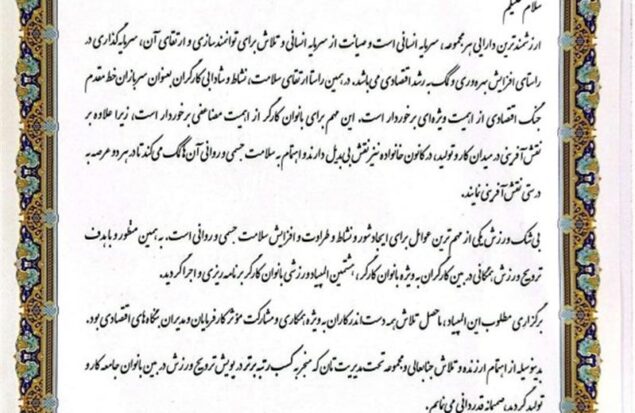 سلام علیکم
ارزشمندترین دارایی هر مجموعه، سرمایه انسانی است و صیانت از سرمایه انسانی و تلاش برای توانمندسازی و ارتقای آن، سرمایه گذاری در
راستای افزایش بهره وری و کمک به رشد اقتصادی می باشد. در همین راستا ارتقای سلامت، نشاط و شادابی کارگران بعنوان سربازان خط مقدم
جنگ اقتصادی از اهمیت ویژه ای برخوردار است. این مهم برای بانوان کارگر از اهمیت مضاعفی برخوردار است، زیرا علاوه بر
نقش آفرینی در میدان کار و تولید، در کانون خانواده نیز نقش بی بدیل دارند و اهتمام به سلامت جسمی و روانی آن ها کمک می کند تا در هر دو عرصه به
درستی نقش آفرینی نمایند.
بی شک ورزش یکی از مهم ترین عوامل برای ایجاد شور و نشاط و طراوت و افزایش سلامت جسمی و روانی است. به همین منظور و با هدف
ترویج ورزش همگانی در بین کارگران به ویژه بانوان کارگر، هشتمین المپیاد ورزشی بانوان کارگر برنامه ریزی و اجرا گردید.
برگزاری مطلوب این المپیاد، ماحصل تلاش همه دست اندرکاران به ویژه همکاری و مشارکت مؤثر کارفرمایان و مدیران بنگاه های اقتصادی بود.
بدینوسیله از اهتمام ارزنده و تلاش جنابعالی و مجموعه تحت مدیریت تان که منجر به کسب رتبه برتر در پویش ترویج ورزش در بین بانوان جامعه کار و
تولید گردید، صمیمانه قدردانی می نمایم.